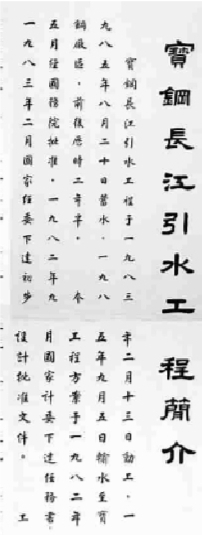 寶鋼長江引水工程簡介
寶鋼長江引水工程于一九八三年二月十三日動工·一
九八五年八月二十日蓄水·一九八五年九月五日輸水至寶
鋼廠區·前後歷時二年半· 本工程方案于一九八二年
五月經國務院批准·一九八二年九月國家計委下達任務書·
一九八三年二月國家經委下達初步設計批准文件。 工